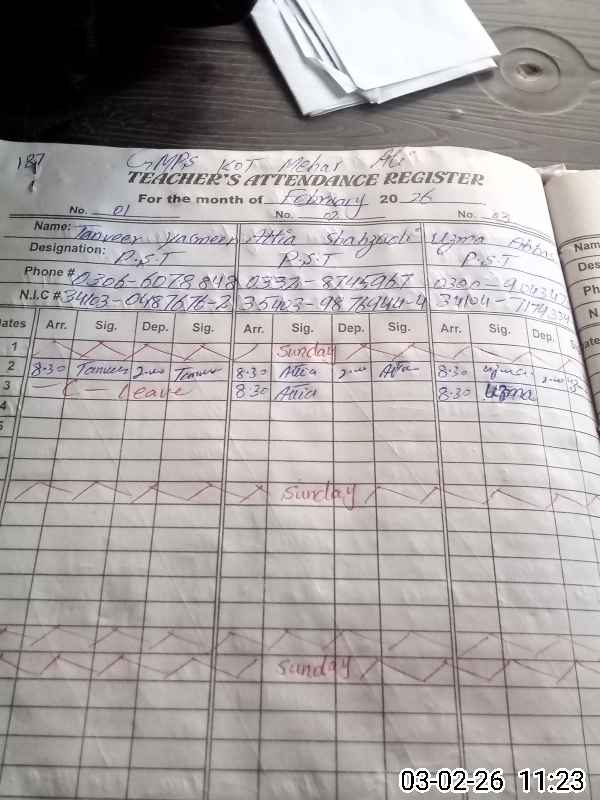 187
GMPS KOT Mehar Ali
TEACHER'S ATTENDANCE REGISTER
For the month of February 2026
No. 01 No. 02 No. 03
Name: Tanveer Yasmeen Attia Shahzadi Uzma Abbas
Designation: P.S.T P.S.T P.S.T
Phone # 0306-6078848 0332-8745967
N.I.C # 34103-0487676-2 35403-9876944-4
Dates Arr. Sig. Dep. Sig. Arr. Sig. Dep. Sig. Arr. Sig. Dep.
1 Sunday
2 8:30 Tanveer 2:00 Tanveer 8:30 Attia 2:00 Attia 8:30 Uzma 2:00
3 C - Leave 8:30 Attia 8:30 Uzma
4
5
Sunday
Sunday
Nam
Des
Ph
N
03-02-26 11:23